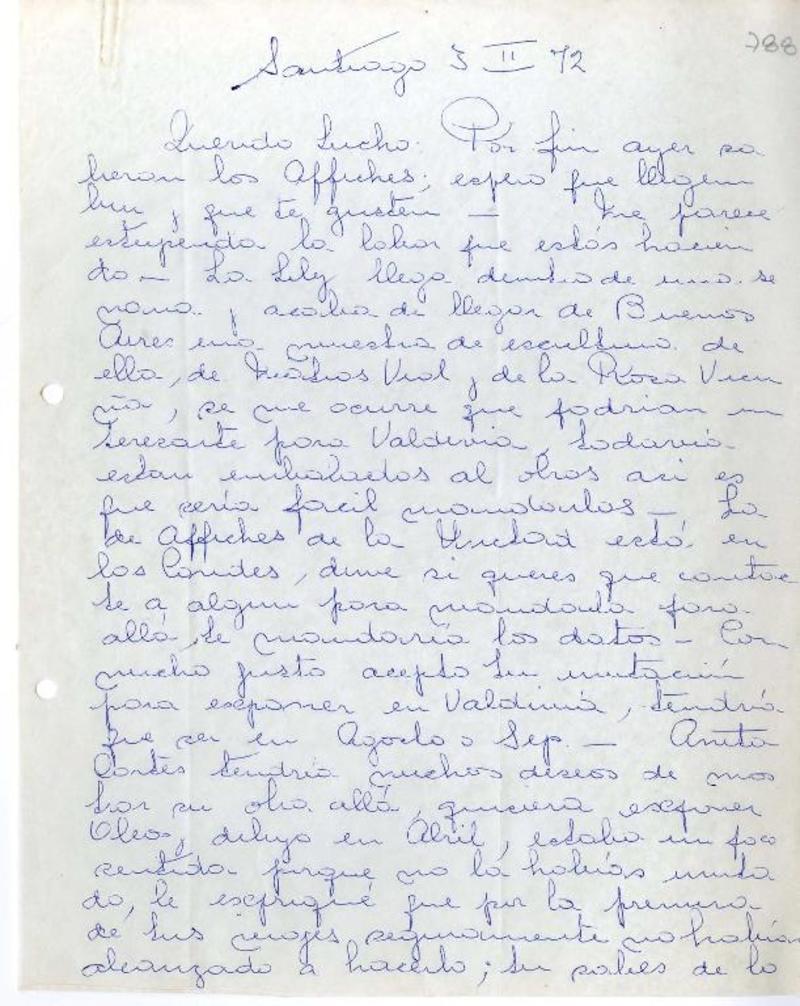 788
Santiago 3 II 72
Querido Lucho: Por fin ayer sa
lieron los Affiches; espero que llegem
bien y que te gusten — Me parece
estupenda la labor que estás hacien
do — La Lily llega dentro de una se
mana y acaba de llegar de Buenos
Aires una muestra de escultura de
ella, de Matias Vial y de la Rosa Vicu
ña, se me ocurre que podrian in
teresarte para Valdivia, todavia
estan embalados al otros asi es
que sería facil mandarlas — La
de Affiches de la Unctad está en
las Condes, dime si queres que contac
te a alguin para mandarla para
allá, te mandaría los datos — Con
mucho gusto acepto tu invitación
para exponer en Valdivia, tendría
que ser en Agosto o Sep. — Anita
Cortés tendría muchos deseos de mos
trar su obra allá, quisiera exponer
Oleos y dibujo en Abril, estaba un poco
sentida porque no la habías invita
do, le expliqué que por la premura
de tus viajes seguramente no habías
alcanzado a hacerlo; tu sabes de lo